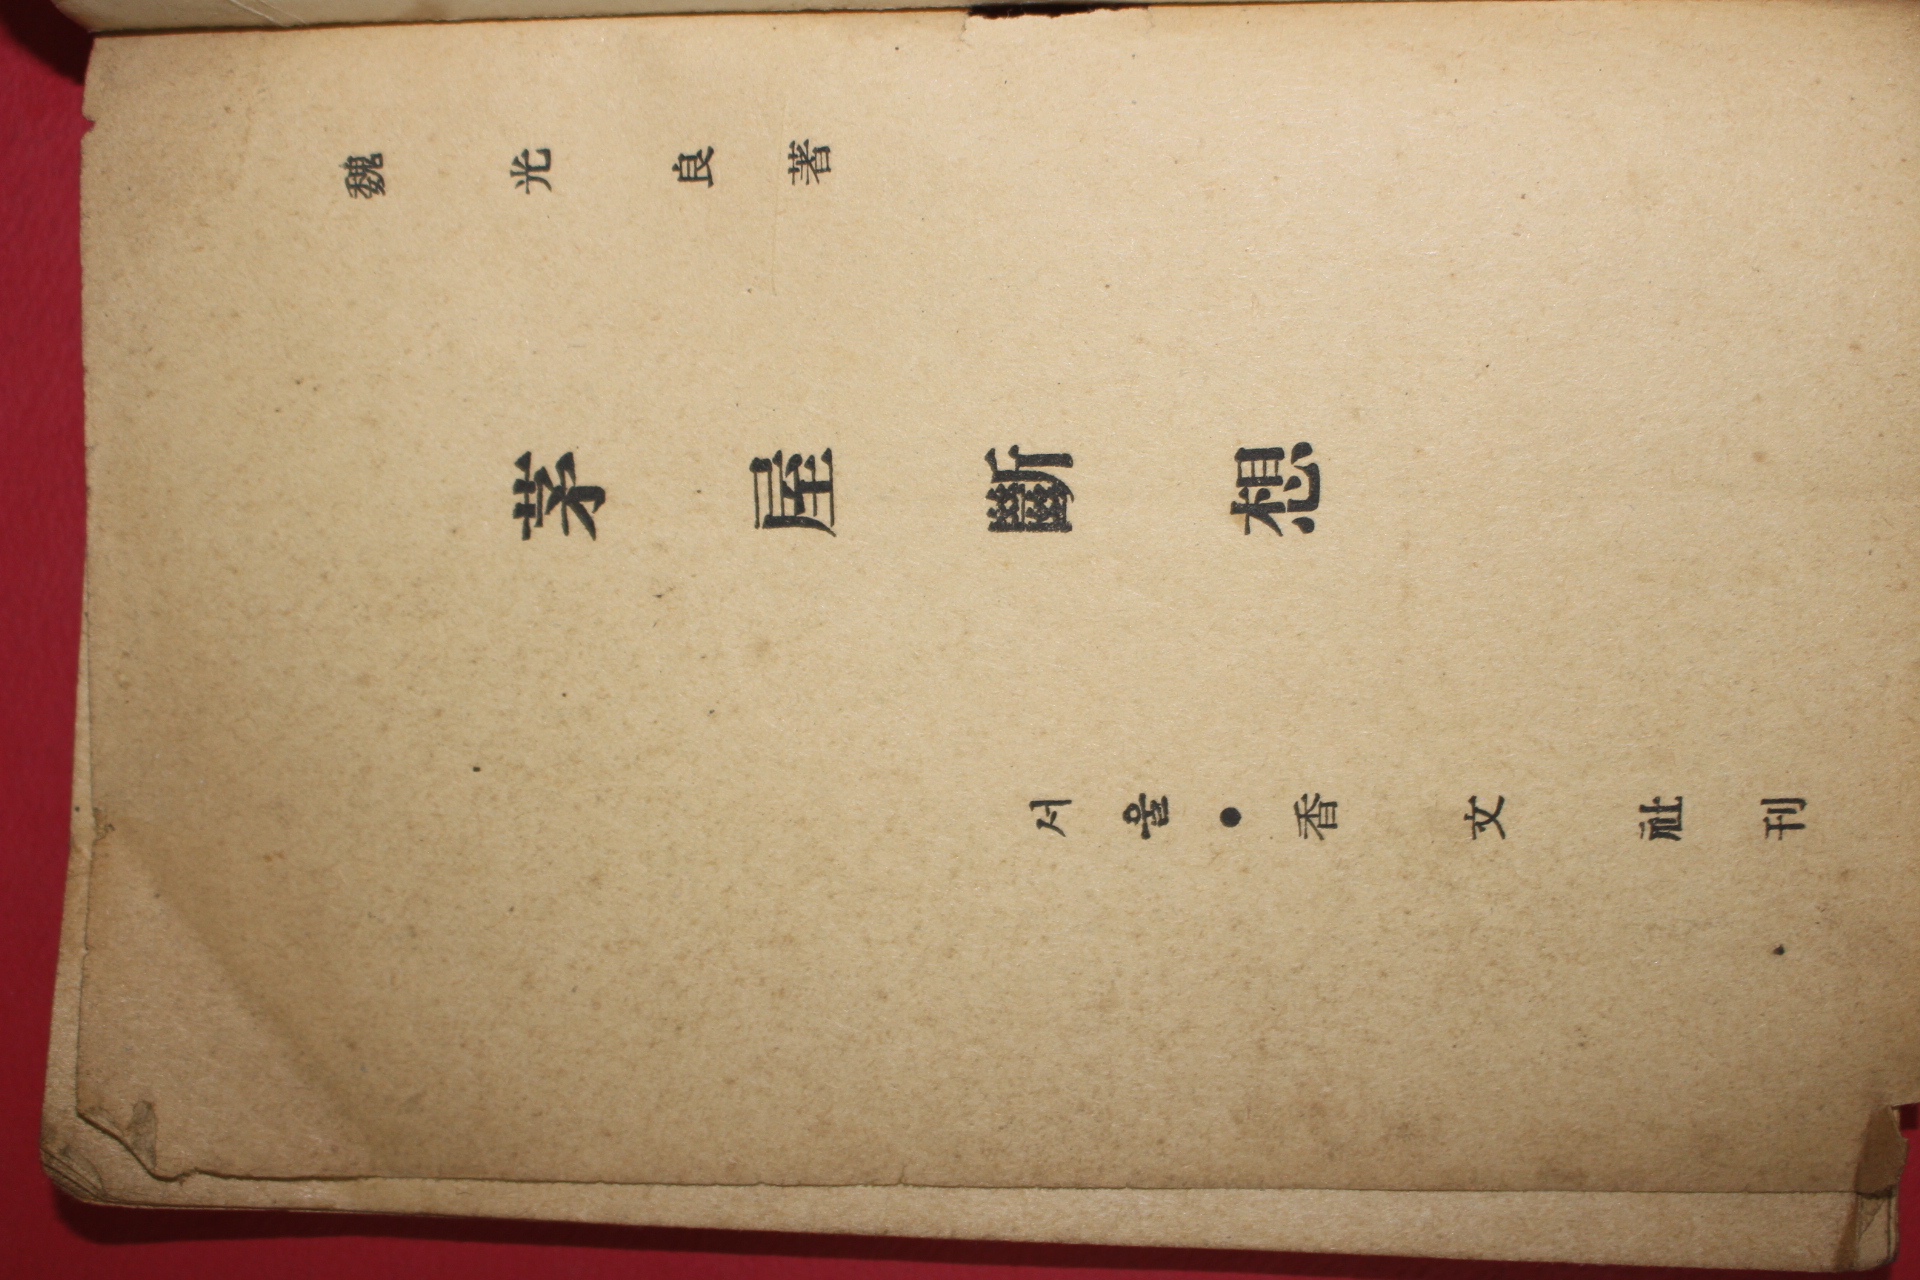 魏光良著
茅屋斷想
서울●香文社刊